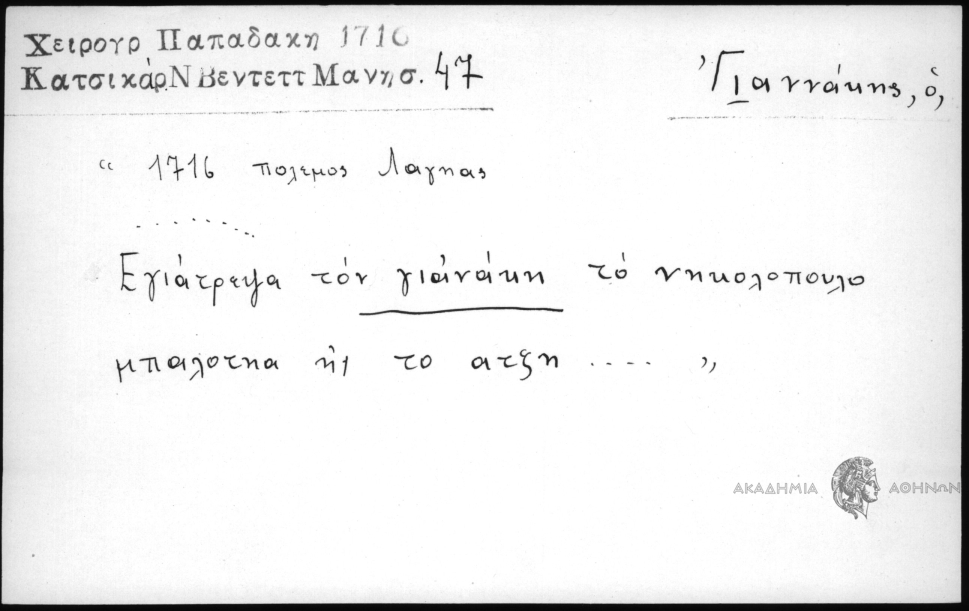 Χειρογρ Παπαδακη 1716
Κατσικάρ Ν Βεντεττ Μανης σ. 47
Γιαννάκης, ὁ,
“ 1716 πολεμος Λαγηας
..........
Εγιάτρεψα τόν γιἀνάκη τό νηκολοπουλο
μπαλοτηα ἠ το ατζη .... ”
ΑΚΑΔΗΜΙΑ ΑΘΗΝΩΝ